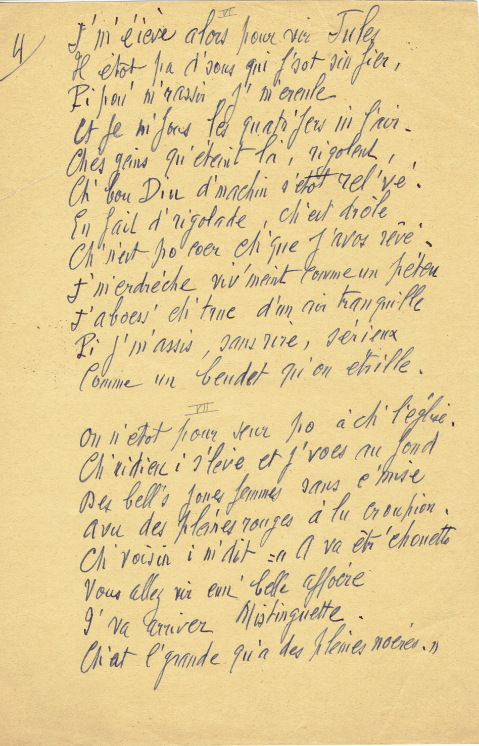 4
VI
J' m'élève alors pour vir Jules
Il étot pa d'sous qui f'sot sin fier,
Pi pou' m'rassir j' m'ercule
Et je m'fous les quat' fers in l'air.
Ches gens qu'éteint là, rigolent,
Ch' bou Diu d'machin s'étot rel'vé.
En fait d'rigolade, ch'est drôle
Ch' n'est po coer ch'que j'avos rêvé.
J' m'erdréche viv'meint comme un péteu
J'aboess' ch' truc d'un air tranquille
Pi j' m'assis, sans rire, sérieux
Comme un beudet qu'on étrille.
VII
On n'étot pour seur po à ch' l'église.
Ch' ridieu i s'lève et j'voes au fond
Des bell's jones femmes sans c'mise
Avu des pleines rouges à lu croupion.
Ch' voisin i m'dit "A va êtr' chouette
Vous allez vir enn' belle affoére
I' va arriver Mistinguette.
Ch'est l'grande qu'a des pleines noéres."